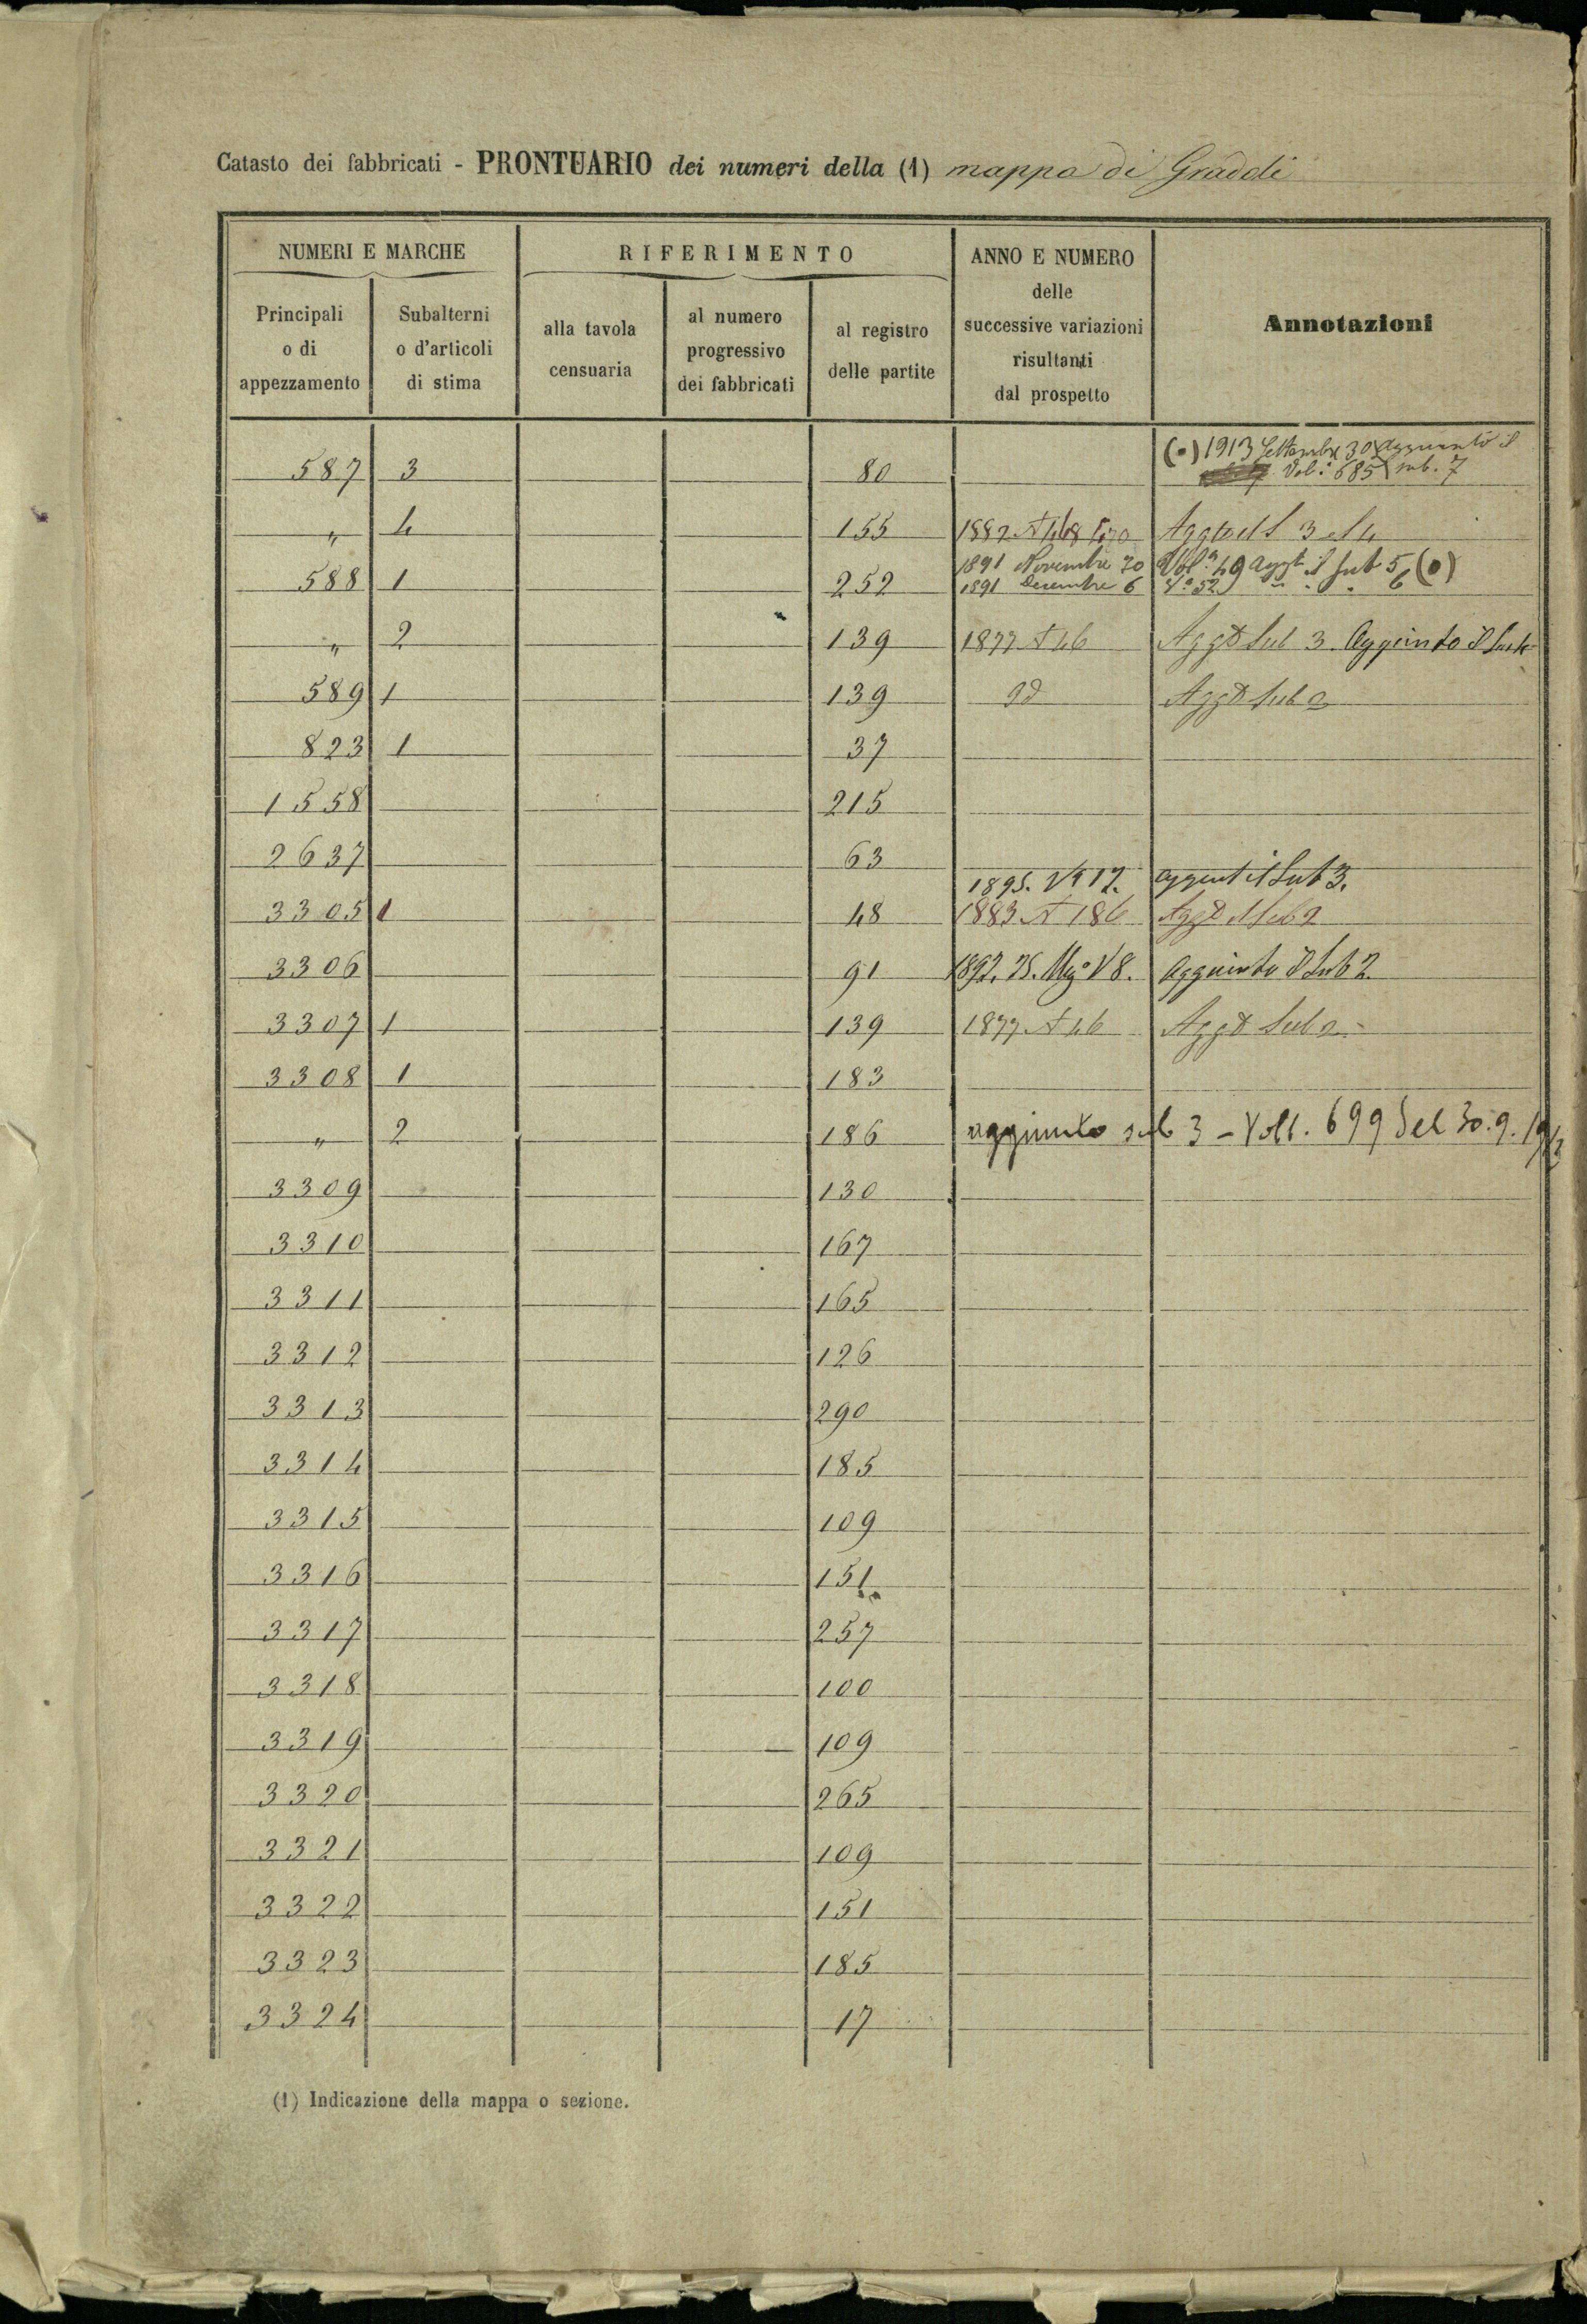 Catasto dei fabbricati - PRONTUARIO dei numeri della (1) mappa di Gradoli
NUMERI E MARCHE
RIFERIMENTO
ANNO E NUMERO
delle
successive variazioni
risultanti
dal prospetto
Annotazioni
Principali
o di
appezzamento
Subalterni
o d'articoli
di stima
alla tavola
censuaria
al numero
progressivo
dei fabbricati
al registro
delle partite
587 3 80 (•) 1913 Settembre 30 aggiunto il
Vol. 685 sub. 7
" 4 155 1882 Aggto 3 4
1891 Novembre 20 49 Aggt il sub 5
588 1 252 1891 Decembre 6 52 " " " 6 (•)
" 2 139 1877 N 46 Aggto Sub 3. Aggiunto il Sub 4
589 1 139 Aggto Sub 2
823 1 37
1558 215
2637 63
1895. 17. il Sub 3.
3305 1 48 1883 N 186 Aggto il Sub 2
3306 91 1892. 25. V 8. Aggiunto il Sub 2
3307 1 139 1877 N 46 Aggto Sub 2
3308 1 183
" 2 186 aggiunto sub 3 - Volt. 699 del 30.9.1913
3309 130
3310 167
3311 165
3312 126
3313 290
3314 185
3315 109
3316 151
3317 257
3318 100
3319 109
3320 265
3321 109
3322 151
3323 185
3324 17
(1) Indicazione della mappa o sezione.